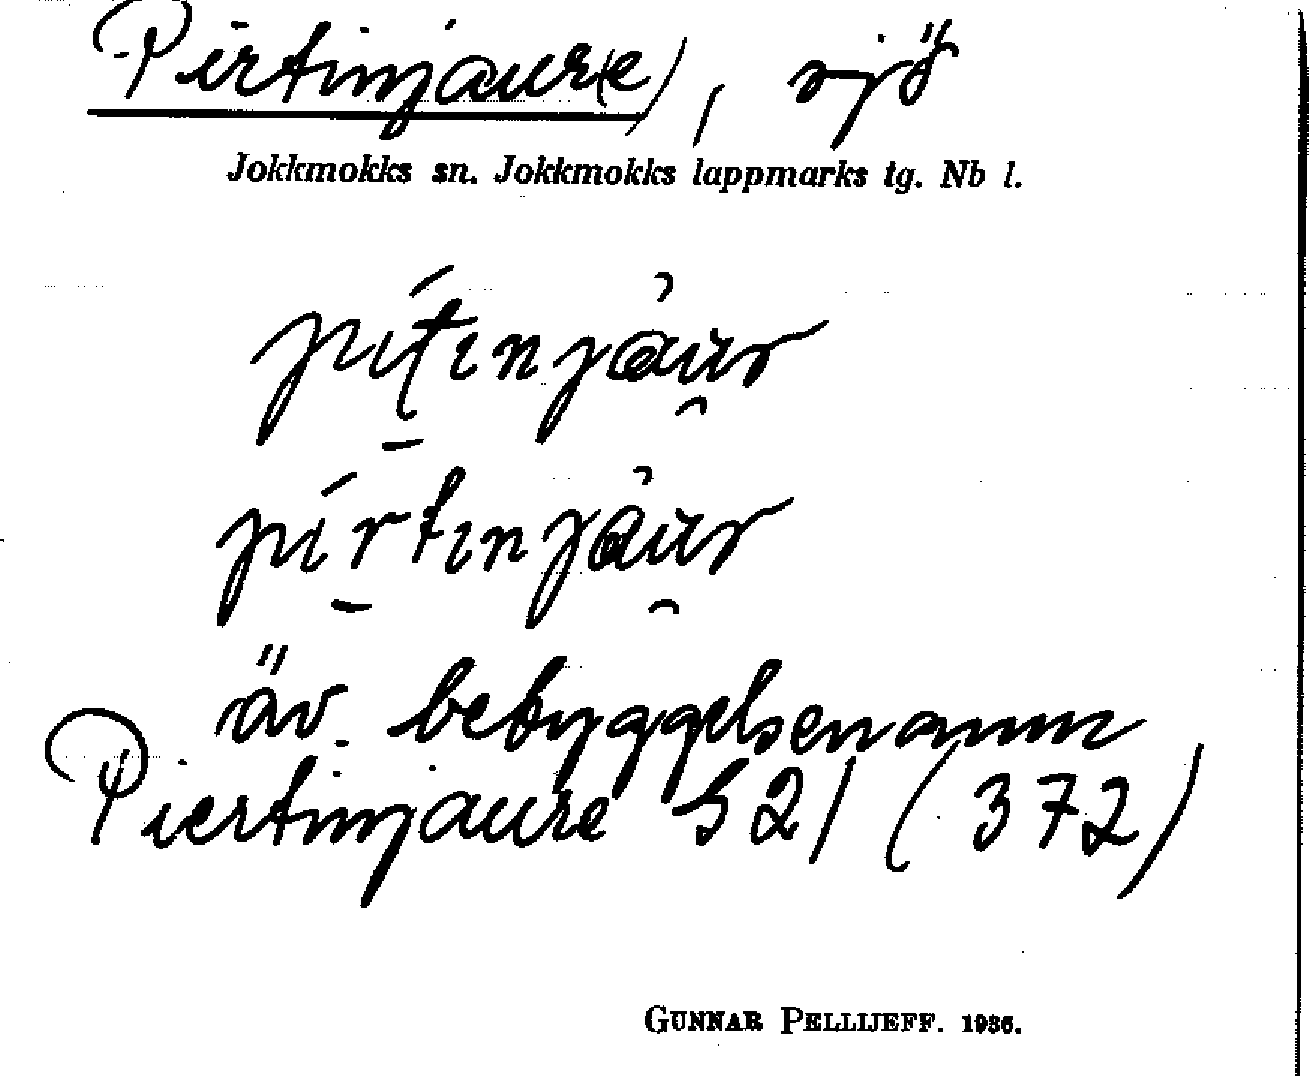 Pirtinjaur(e), sjö
Jokkmokks sn. Jokkmokks lappmarks tg. Nb l.
pítinjàur
pírtinjàur
äv. bebyggelsenamn
Piertinjaure 521 (372)
GUNNAR PELLIJEFF. 1936.